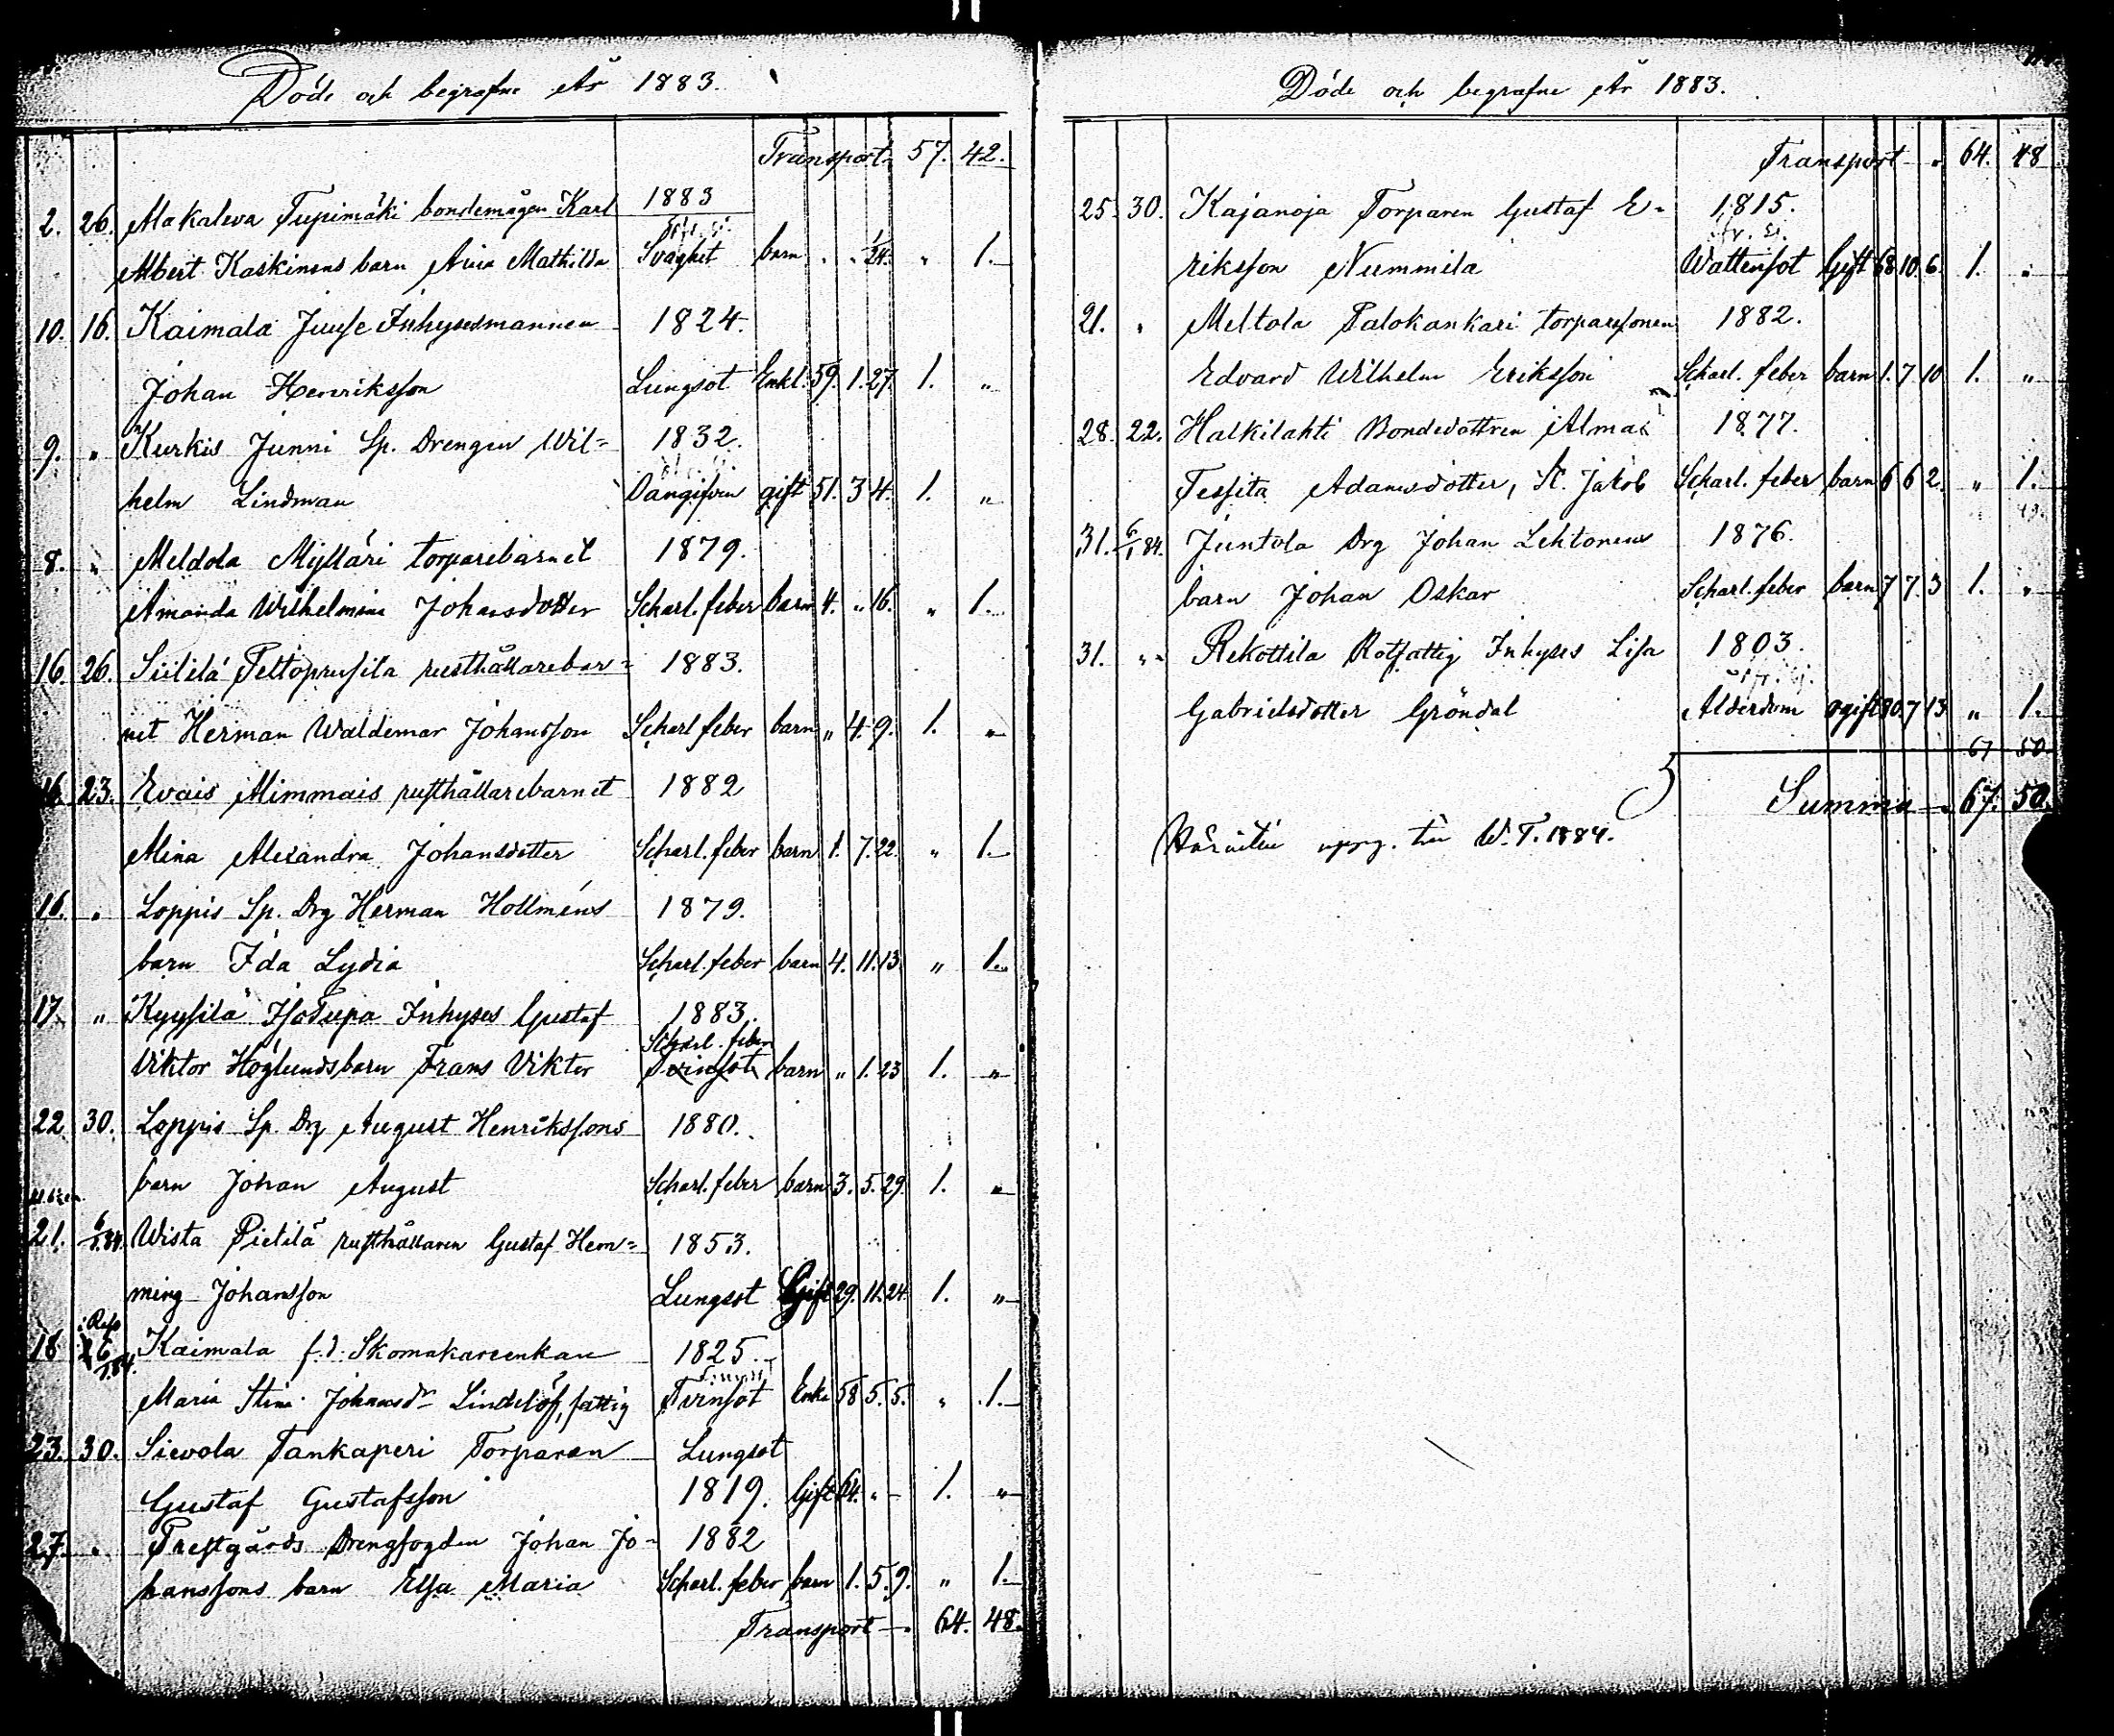 Döde och begrafne År 1883.
Transport 57. 42.
2. 26. Makaleva Tupimäki bondemågen Karl 1883
Albert Kaskinens barn Aina Mathilda Svaghet barn . . 1/24. " 1.
10. 16. Kaimala Juuse Inhysesmannen 1824.
Johan Henriksson Lungsot Enkl. 59. 1. 27. 1. "
9. " Kurkis Junni Sp. Drengen Wil= 1832.
helm Lindman Oangifven gift 51. 3 4. 1. "
8. " Meldola Mylläri torparebarnet 1879.
Amanda Wilhelmina Johansdotter Scharl. feber barn 4. " 16. " 1.
16. 26. Siililä Peltoprusila rusthållarebar= 1883.
net Herman Waldemar Johansson Scharl feber barn " 4. 9. 1. "
16. 23. Evais Mimmais rusthållarebarnet 1882
Mina Alexandra Johansdotter Scharl. feber barn 1. 7. 22. " 1.
16. " Loppis Sp. Drg Herman Hollméns 1879.
barn Ida Lydia Scharl. feber barn 4. 11. 13. " 1.
17. " Kyysilä IsoTupa Inhyses Gustaf 1883.
Scharl. feber
Viktor Höglunds barn Frans Viktor barn " 1. 23 1. "
22 30. Loppis Sp. Drg August Henrikssons 1880.
barn Johan August Scharl. feber barn 3. 5. 29. 1. "
21. 6/1.84. Wista Pietilä rusthållaren Gustaf Hem= 1853.
ming Johansson Lungsot Gift 29. 11. 24. 1. "
18 26 Kaimala f.d. Skomakareenkan 1825.
Maria Stina Johansdr Lindelöf, fattig Tvinsot Enka 58 5. 5. " 1.
23. 30. Sievola Tankaperi Torparen Lungsot
Gustaf Gustafsson 1819. Gift 64. " - 1. "
27. " Prestgårds Drengfogden Johan Jo= 1882
hanssons barn Elsa Maria Scharl. feber barn 1. 5. 9. " 1.
Transport 64. 48.
Döde och begrafne År 1883.
Transport 64. 48
25. 30. Kajanoja Torparen Gustaf E= 1815.
riksson Nummila Wattensot Gift 68 10. 6. 1. "
21. " Meltola Palokankari torparsonen 1882.
Edvard Wilhelm Eriksson Scharl. feber barn 1. 7 10 1. "
28. 22. Halkilahti Bondedottren Alma 1877.
Tessita Adamsdotter, St. Jakob Scharl. feber barn 6 6 2. " 1.
31. 6/1 84. Juntola Drg Johan Lehtonens 1876.
barn Johan Oskar Scharl. feber barn 7 7. 3 1. "
31. " Rekottila Rotfattig Inhyses Lisa 1803.
Gabrielsdotter Gröndal Ålderdom ogift 80. 7 13 " 1.
67 50
Summa 67. 50.
W. T. 1884.